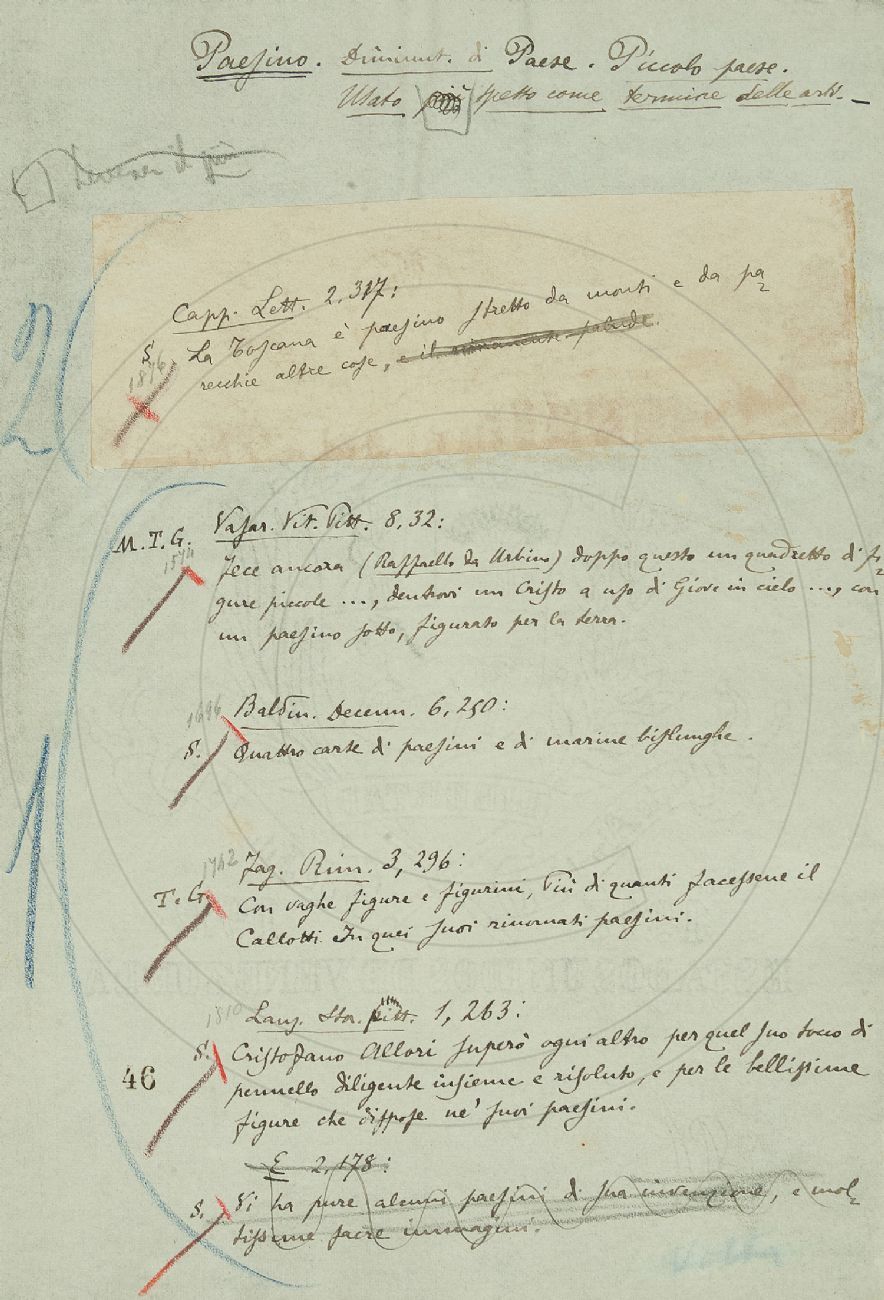 Paesino. Diminut. di Paese. Piccolo paese.
Usato più spesso come termine delle arti. –
il più
2
Capp. Lett. 2, 317:
S. La Toscana è paesino stretto da monti e da pa=
1846
recchie altre cose, e il rimanente palude.
M. T. G. Vasar. Vit. Pitt. 8, 32:
1574
Fece ancora (Raffaello da Urbino) doppo questo un quadretto di fi=
gure piccole ..., dentrovi un Cristo a uso di Giove in cielo ..., con
un paesino sotto, figurato per la terra.
1
1696
Baldin. Decenn. 6, 250:
S. Quattro carte di paesini e di marine bislunghe.
1742
Fag. Rim. 3, 296:
T. G. Con vaghe figure e figurini, Più di quanti facessene il
Callotti In quei suoi rinomati paesini.
1810
Lanz. Stor. pitt. 1, 263:
S. Cristofano Allori superò ogni altro per quel suo tocco di
46
pennello diligente insieme e risoluto, e per le bellissime
figure che dispose ne' suoi paesini.
E 2, 178:
S. Vi ha pure alcuni paesini di sua invenzione, e mol=
tissime sacre immagini.